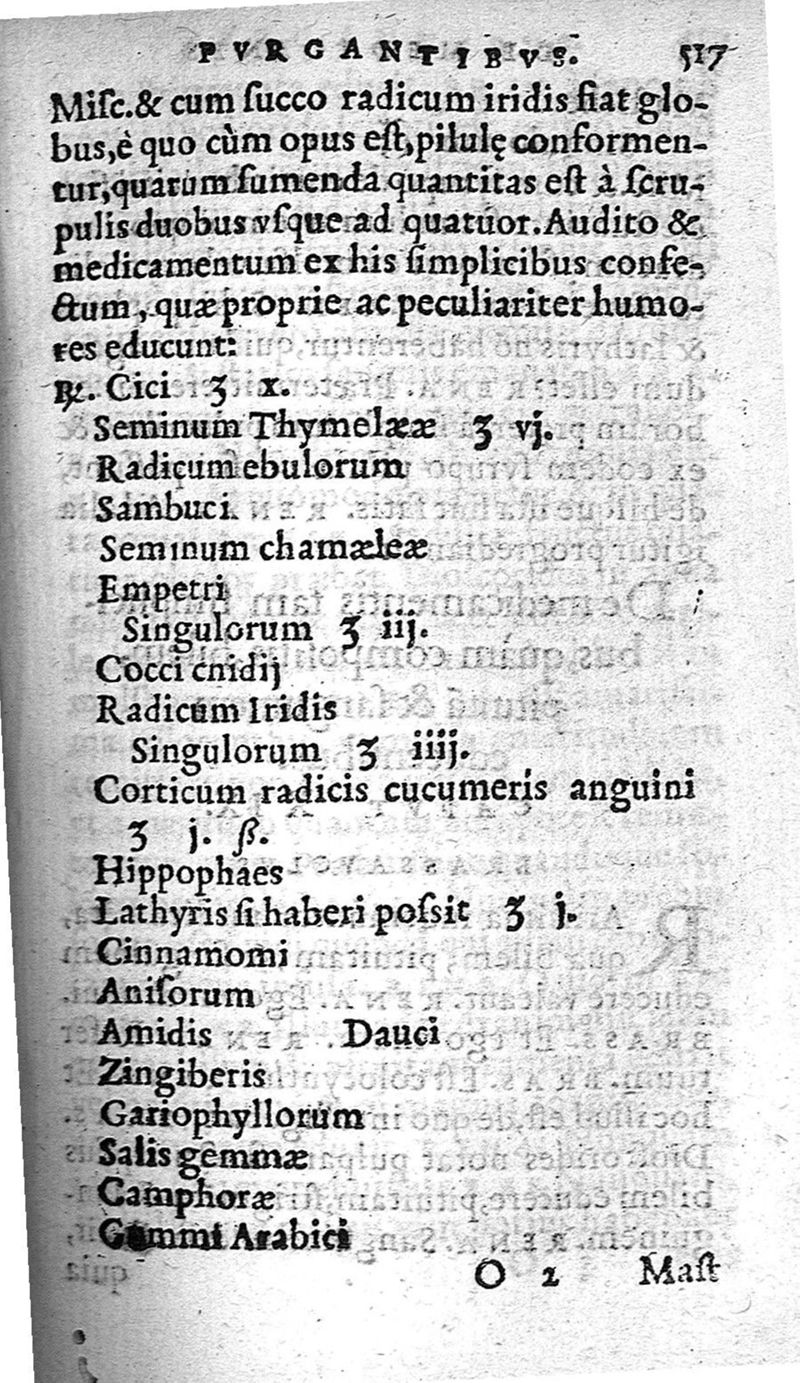 PVRGANTIBVS. 517
Miſc.& cum ſucco radicum iridis fiat glo-
bus,è quo cùm opus eſt,pilulę conformen-
tur,quarum ſumenda quantitas eſt à ſcru-
pulis duobus vſque ad quatuor.Audito &
medicamentum ex his ſimplicibus confe-
ctum, quæ proprie ac peculiariter humo-
res educunt:
℞. Cici ʒ x.
Seminum Thymelææ ʒ vj.
Radicum ebulorum
Sambuci
Seminum chamæleæ
Empetri
Singulorum ʒ iij.
Cocci cnidij
Radicum Iridis
Singulorum ʒ iiij.
Corticum radicis cucumeris anguini
ʒ j. ß.
Hippophaes
Lathyris ſi haberi poſsit ʒ j.
Cinnamomi
Aniſorum
Amidis Dauci
Zingiberis
Gariophyllorum
Salis gemmæ
Camphoræ
Gummi Arabici
O 2 Maſt